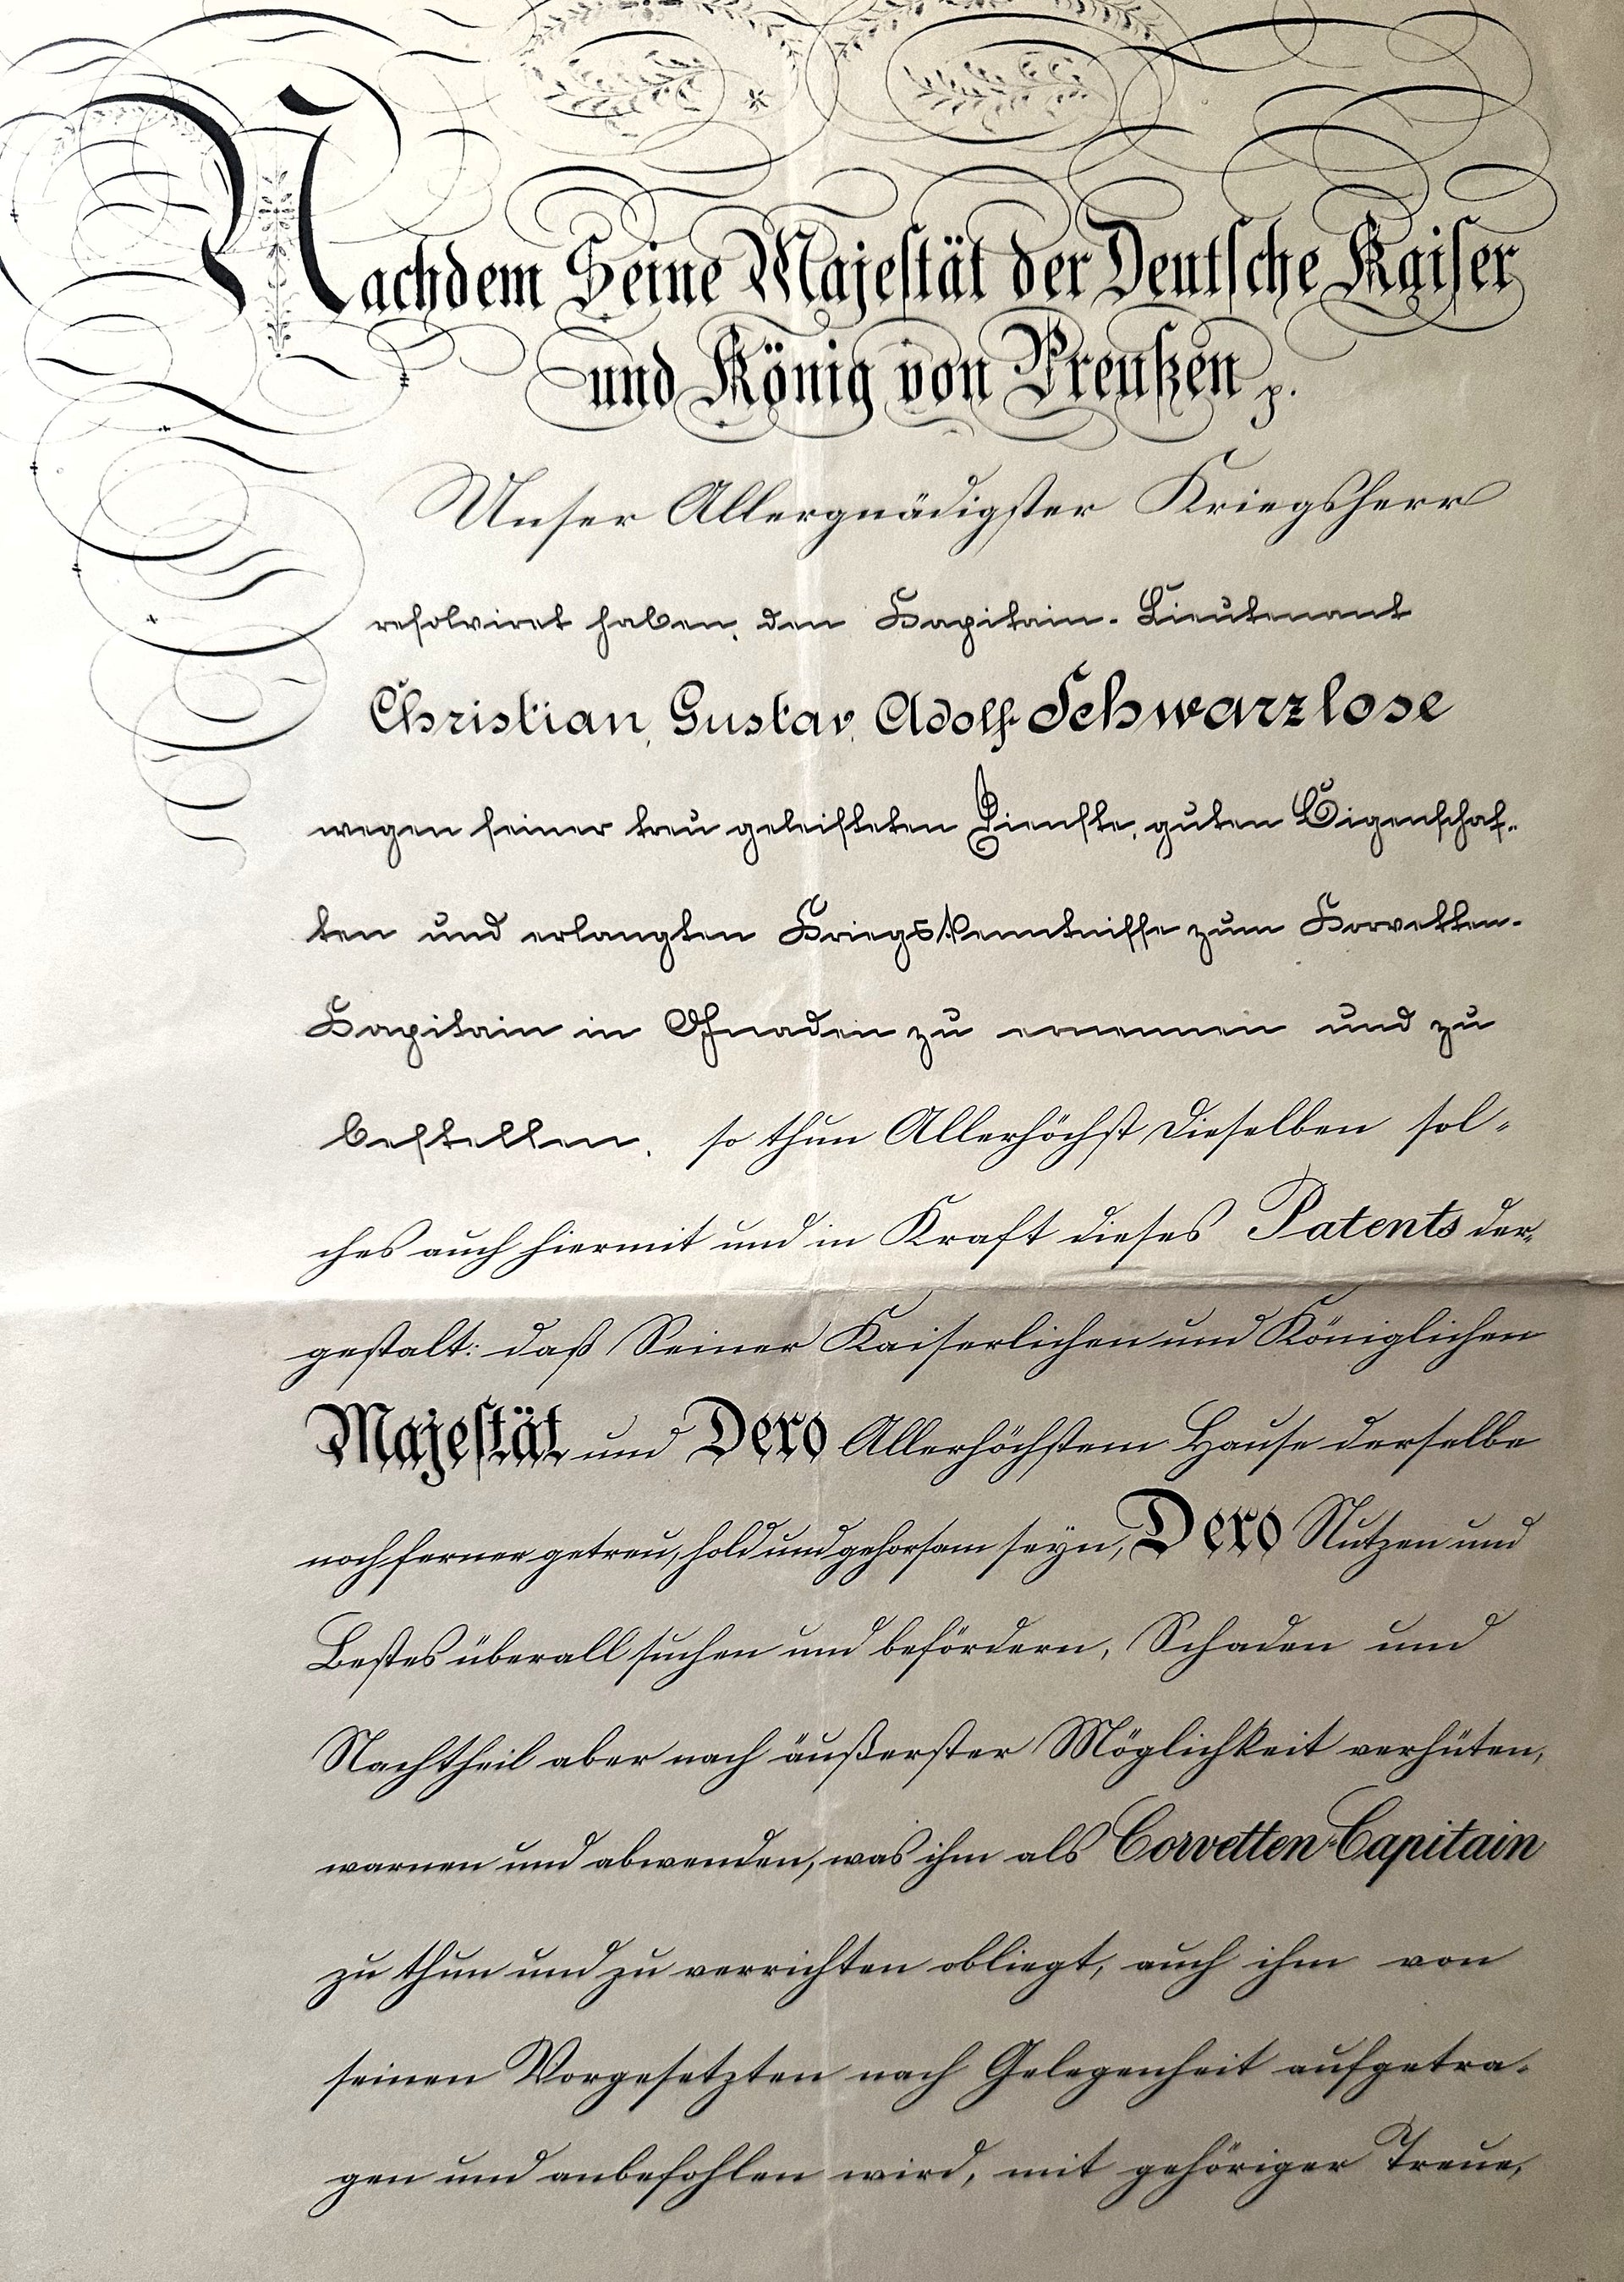 Nachdem Seine Majestät der Deutsche Kaiser
und König von Preußen p.
Unser Allergnädigster Kriegsherr
resolviret haben, den Kapitain-Lieutenant
Christian, Gustav, Adolf Schwarzlose
wegen seiner treu geleisteten Dienste, guten Eigenschaf-
ten und erlangten Kriegskenntnisse zum Korvetten-
Kapitain in Gnaden zu ernennen und zu
bestellen, so thun Allerhöchst Dieselben sol-
ches auch hiermit und in Kraft dieses Patents der-
gestalt: daß Seiner Kaiserlichen und Königlichen
Majestät und Dero Allerhöchstem Hause derselbe
noch ferner getreu, hold und gehorsam seyn, Dero Nutzen und
Bestes überall suchen und befördern, Schaden und
Nachtheil aber nach äußerster Möglichkeit verhüten,
warnen und abwenden, was ihm als Corvetten-Capitain
zu thun und zu verrichten obliegt, auch ihm von
seinen Vorgesetzten nach Gelegenheit aufgetra-
gen und anbefohlen wird, mit gehöriger Treue,